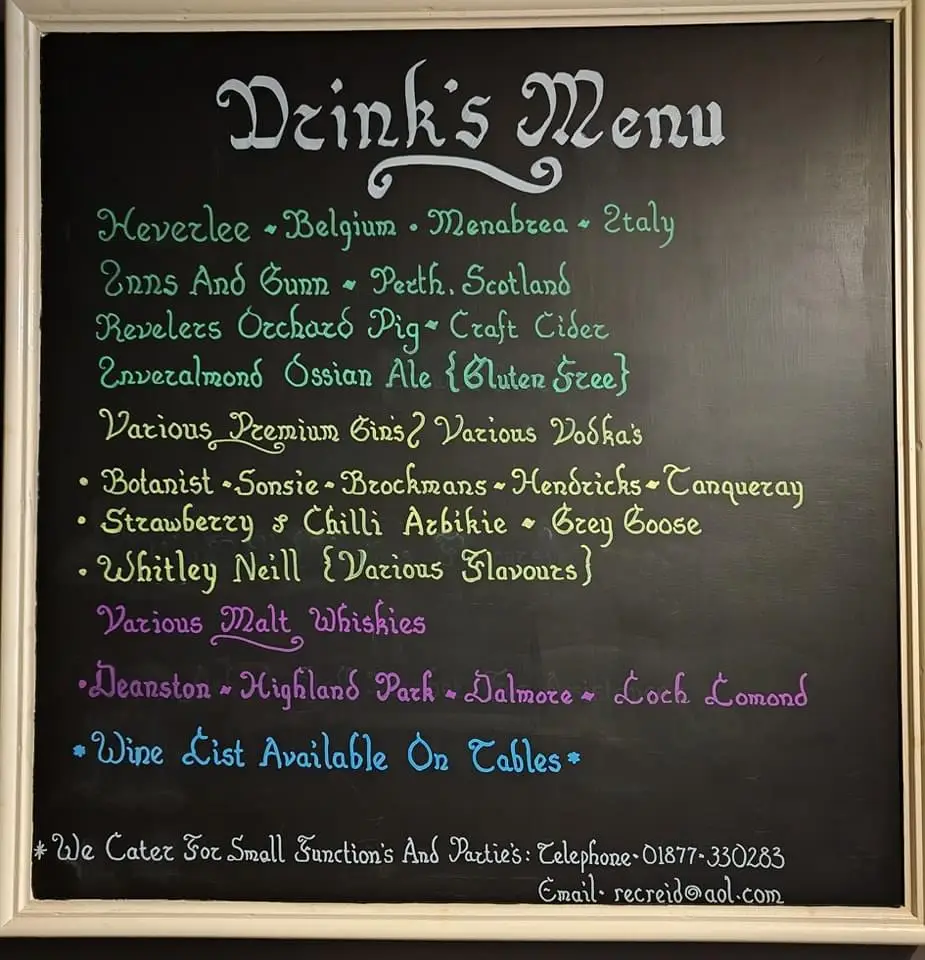 Drink's Menu
Heverlee ~ Belgium • Menabrea ~ Italy
Inns And Gunn ~ Perth, Scotland
Revelers Orchard Pig ~ Craft Cider
Inveralmond Ossian Ale {Gluten Free}
Various Premium Gins? Various Vodka's
• Botanist ~ Sonsie ~ Brockmans ~ Hendricks ~ Tanqueray
• Strawberry & Chilli Arbikie ~ Grey Goose
• Whitley Neill {Various Flavours}
Various Malt Whiskies
• Deanston ~ Highland Park ~ Dalmore ~ Loch Lomond
* Wine List Available On Tables *
* We Cater For Small Function's And Partie's: Telephone • 01877-330283
Email • recreid@aol.com